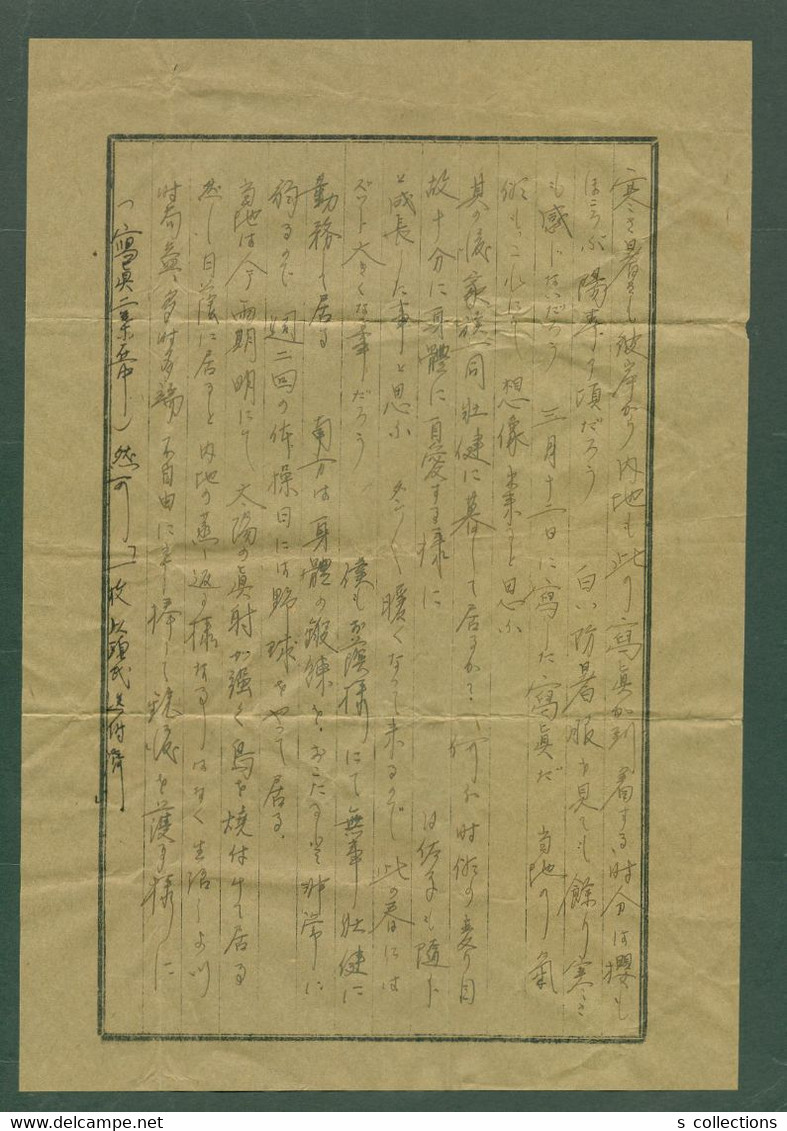 寒さ暑さも彼岸から内地も此の寫眞が到着する時分は櫻も
ほころぶ陽季の頃だろう 白い防暑服を見ても餘り寒さ
も感じないだろう 三月十一日に寫した寫眞だ 当地の氣
候もこれにて想像出来うと思ふ
其の後家族一同壮健に暮して居るか? 何れ時候の変り目
故十分に身體に自愛する様に も随分
と成長した事と思ふ 暖くなって来るので此の春には
ズット大きくなる事だろう 僕もお蔭様にて無事壮健に
勤務して居る 南方は身體の鍛錬をおこたると非常に
弱るので週二回の体操日には野球をやって居る.
当地は今雨期明にて太陽の直射が強く島を焼付けて居る
然し日蔭に居ると内地の蒸し返る様なる事はなく生活しよい
時局益々多時多端 不自由に 捧して銃後を護る様に
(寫眞二葉 ) 然可し 一枚 氏送付済
s collections